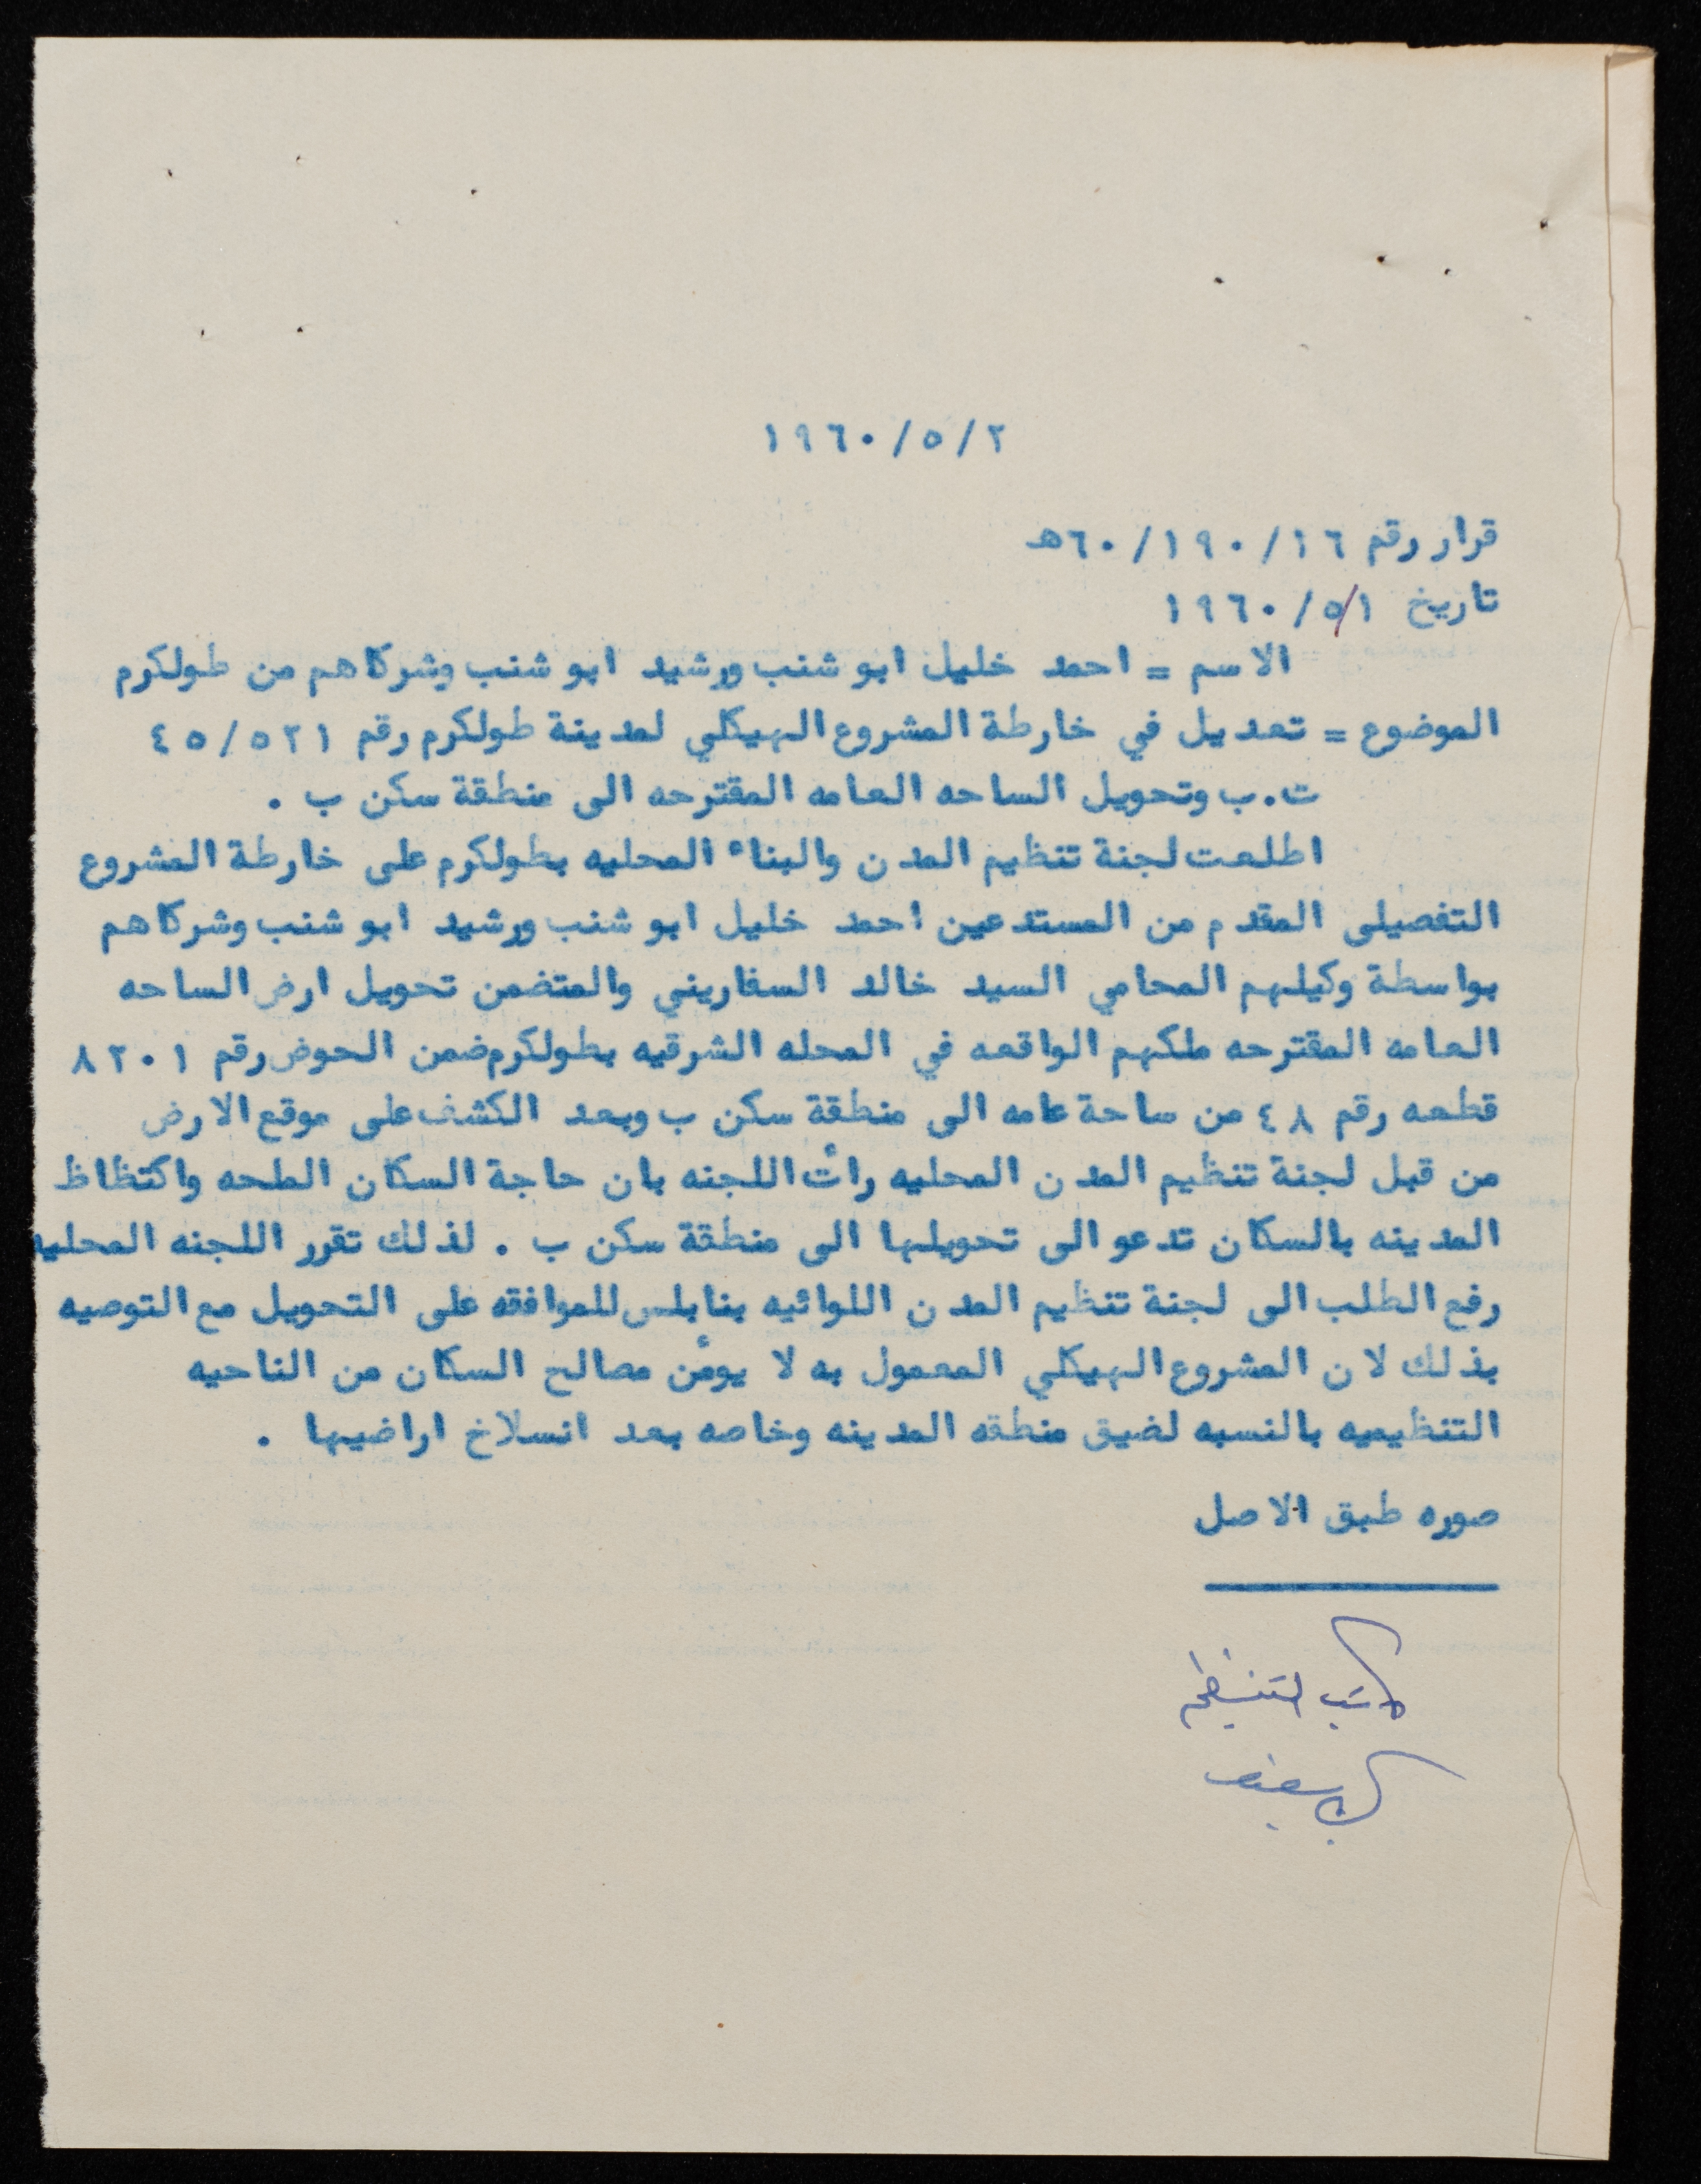 ١٩٦٠/٥/٢
قرار رقم ٦٠/١٩٠/١٦هـ
تاريخ ١٩٦٠/٥/١
الاسم = احمد خليل ابو شنب ورشيد ابو شنب وشركاهم من طولكرم
الموضوع = تعديل في خارطة المشروع الهيكلي لمدينة طولكرم رقم ٤٥/٥٢١
ت.ب وتحويل الساحه العامه المقترحه الى منطقة سكن ب .
اطلعت لجنة تنظيم المدن والبناء المحليه بطولكرم على خارطة المشروع
التفصيلى المقدم من المستدعين احمد خليل ابو شنب ورشيد ابو شنب وشركاهم
بواسطة وكيلهم المحامي السيد خالد السفاريني والمتضمن تحويل ارض الساحه
العامه المقترحه ملكهم الواقعه في المحله الشرقيه بطولكرم ضمن الحوض رقم ٨٢٠١
قطعه رقم ٤٨ من ساحة عامه الى منطقة سكن ب وبعد الكشف على موقع الارض
من قبل لجنة تنظيم المدن المحليه رأت اللجنه بان حاجة السكان الملحه واكتظاظ
المدينه بالسكان تدعو الى تحويلها الى منطقة سكن ب . لذلك تقرر اللجنه المحليه
رفع الطلب الى لجنة تنظيم المدن اللوائيه بنابلس للموافقه على التحويل مع التوصيه
بذلك لان المشروع الهيكلي المعمول به لا يومٔن مصالح السكان من الناحيه
التنظيميه بالنسبه لضيق منطقه المدينه وخاصه بعد انسلاخ اراضيها .
صوره طبق الاصل
كاتب التنظيم